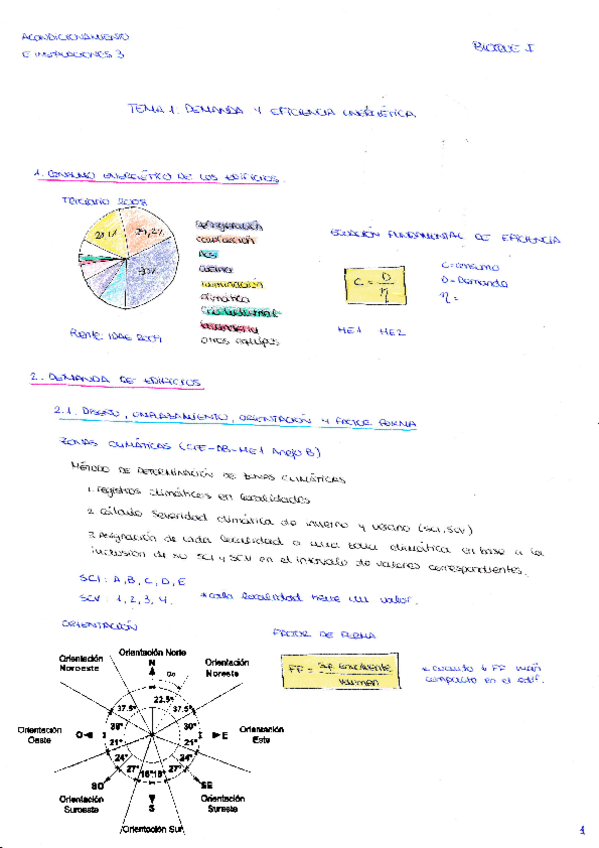 ACONDICIONAMIENTO
E INSTALACIONES 3
BLOQUE I
TEMA 1. DEMANDA Y EFICIENCIA ENERGÉTICA
1. CONSUMO ENERGÉTICO DE LOS EDIFICIOS.
TERCIARIO 2008
Refrigeración
Calefacción
ACS
Cocina
Iluminación
Ofimática
Frío industrial
Lavandería
Otros equipos
29,2%
FUENTE: IDAE 2009
ECUACIÓN FUNDAMENTAL DE EFICIENCIA
C = D / η
C = consumo
D = Demanda
η =
HE1 HE2
2. DEMANDA DE EDIFICIOS
2.1. DISEÑO, EMPLAZAMIENTO, ORIENTACIÓN Y FACTOR FORMA
ZONAS CLIMÁTICAS (CTE-DB-HE1 Anejo B)
MÉTODO DE DETERMINACIÓN DE ZONAS CLIMÁTICAS
1. Registros climáticos en localidades
2. Cálculo Severidad climática de invierno y verano (SCI, SCV)
3. Asignación de cada localidad a una zona climática en base a la
inclusión de su SCI y SCV en el intervalo de valores correspondientes.
SCI: A, B, C, D, E
SCV: 1, 2, 3, 4.
* cada localidad tiene un valor.
ORIENTACIÓN
Orientación Norte
N
Orientación
Noroeste
Orientación
Noreste
22.5°
37.5°
37.5°
Orientación
Oeste
O
E
Orientación
Este
39°
30°
21°
21°
24°
24°
27°
27°
18°18°
SO
SE
Orientación
Suroeste
Orientación
Sureste
S
Orientación Sur
FACTOR DE FORMA
FF = Sup. envolvente / volumen
* cuanto ↓ FF más
compacto en el edif.
1